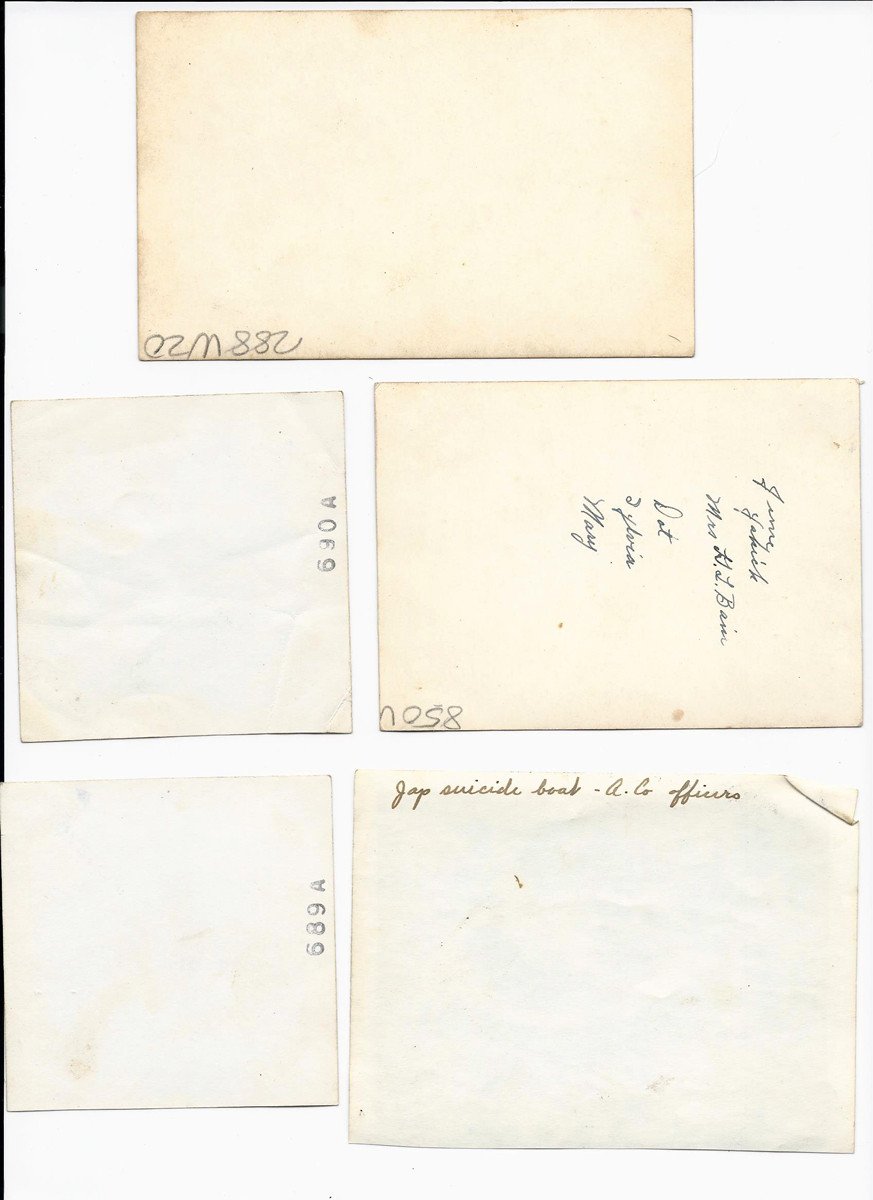 288W20
690A
June
Mrs H.L. Bain
Dot
Sylvia
Mary
689A
Jap suicide boat - A. Co officers